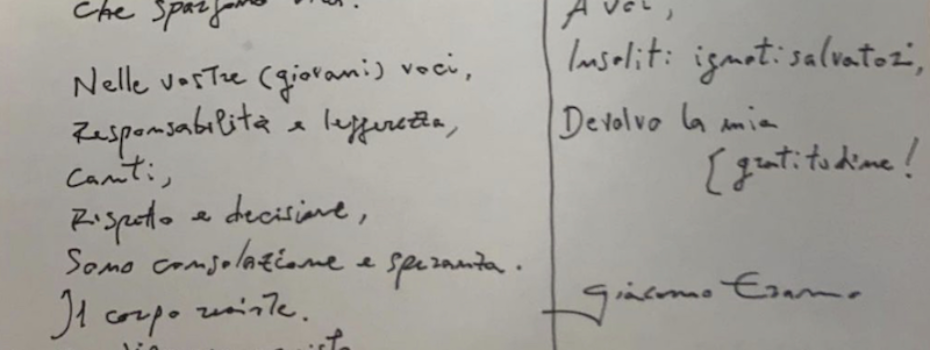 che
Nelle vostre (giovani) voci,
Responsabilità e leggerezza,
canti,
Rispetto e decisione,
Sono consolazione e speranza.
Il corpo resiste.
A voi,
Insoliti ignoti salvatori,
Devolvo la mia
[gratitudine!
Giacomo